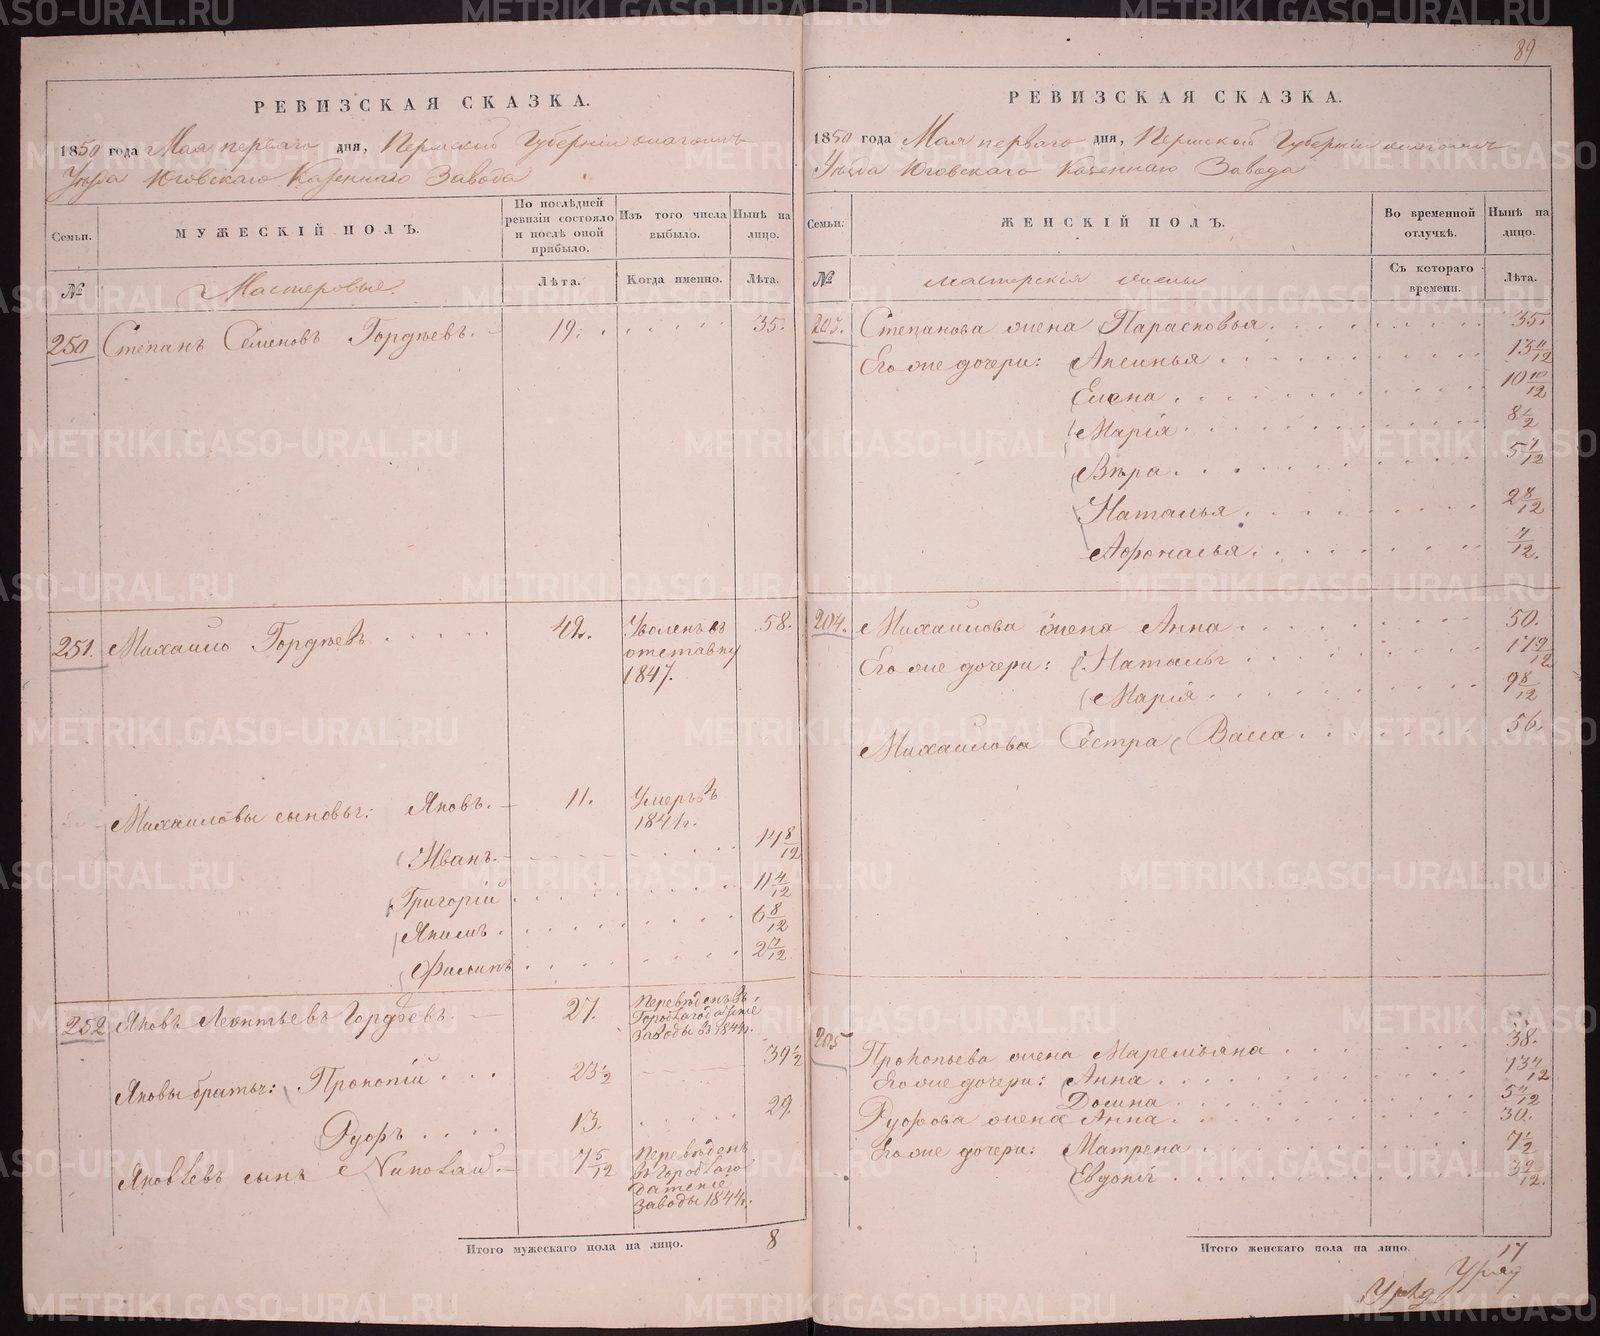 РЕВИЗСКАЯ СКАЗКА.
1850 года Мая перваго дня, Пермской Губернiи
Уѣзда Юговскаго Казеннаго Завода
Семьи.
МУЖЕСКIЙ ПОЛЪ.
По послѣдней ревизiи состояло и послѣ оной прибыло.
Изъ того числа выбыло.
Нынѣ на лицо.
№
Мастеровые.
Лѣта.
Когда именно.
Лѣта.
250 Степанъ Семеновъ Гордѣевъ. 19. 35.
251. Михаило Гордѣевъ 42. Уволенъ въ отставку 1847. 58.
Михаиловы сыновья: Яковъ. 11. Умеръ въ
Иванъ. 14 8/12
Григорiй 11 4/12
Якимъ. 6 8/12
Филипъ 2 7/12
252 Яковъ Леонтьевъ Гордѣевъ. 27. Переведенъ въ Гороблагодатскiе заводы въ 1844г.
Яковы братья: Прокопiй 23 1/2 39 1/2
Ѳедоръ 13. 29.
Яковлевъ сынъ Николай 7 5/12 Переведенъ въ Гороблагодатскiе заводы 1844г.
Итого мужескаго пола на лицо. 8
89
РЕВИЗСКАЯ СКАЗКА.
1850 года Мая перваго дня, Пермской Губернiи
Уѣзда Юговскаго Казеннаго Завода
Семьи.
ЖЕНСКIЙ ПОЛЪ.
Во временной отлучкѣ.
Нынѣ на лицо.
№
мастерскiя жены
Съ котораго времени.
Лѣта.
203. Степанова жена Парасковья 35.
Его же дочери: Аксинья 13 4/12
Елена 10 10/12
Марiя 8 1/2
Вѣра 5 1/12
Наталья 2 8/12
Афрональя
204. Михаилова жена Анна 50.
Его же дочери: Наталья 17 9/12
Марiя 9 8/12
Михаилова Сестра Васса 56.
205 Прокопьева жена Маремьяна 38.
Его же дочери: Анна
Домина
Ѳедорова жена Анна 30.
Его же дочери: Матрена 7 1/2
Евдокiя
Итого женскаго пола на лицо. 17
METRIKI.GASO-URAL.RU